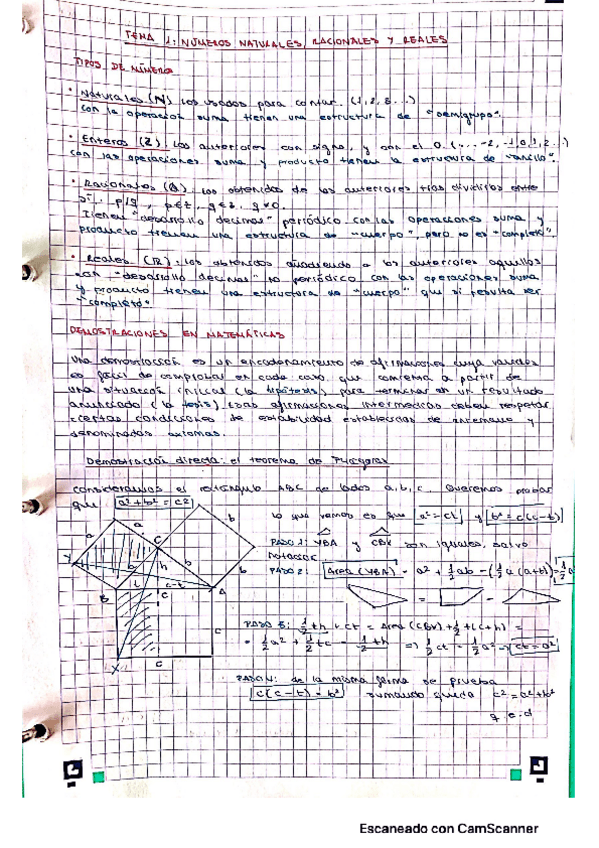 TEMA 1: NÚMEROS NATURALES, RACIONALES Y REALES
TIPOS DE NÚMEROS
• Naturales (N) Los usados para contar. (1, 2, 3...)
con la operación suma tienen una estructura de "semigrupo".
• Enteros (Z): Los anteriores con signo, y con el 0. (... -2, -1, 0, 1, 2...)
con las operaciones suma y producto tienen la estructura de "anillo".
• Racionales (Q): Los obtenidos de los anteriores tras dividirlos entre
sí. p/q, p∈Z, q∈Z, q≠0.
Tienen "desarrollo decimal" periódico con las operaciones suma y
producto tienen una estructura de "cuerpo", pero no es "completo".
• Reales (R): Los obtenidos añadiendo a los anteriores aquellos
con "desarrollo decimal" no periódico con las operaciones suma
y producto tienen una estructura de "cuerpo" que sí resulta ser
"completo"
DEMOSTRACIONES EN MATEMÁTICAS
Una demostración es un encadenamiento de afirmaciones cuya validez
es fácil de comprobar en cada caso que comienza a partir de
una situación inicial (la hipótesis) para terminar en un resultado
anunciado (la tesis). Esas afirmaciones intermedias deben respetar
ciertas condiciones de estabilidad establecidas de antemano y
denominadas axiomas.
Demostración directa: el teorema de Pitágoras
consideramos el rectángulo ABC de lados a, b, c. Queremos probar
que a² + b² = c²
Lo que vemos es que a² = ct y b² = c(c-t)
PASO 1: YBA y CBX son iguales, salvo
rotación
PASO 2: Área (YBA) = a² + ½ab - (½a(a+b)) = ½a
= -
PASO 3: ½th + ct = Área (CBX) + ½t(c+h) =
= ½a² + ½tc + ½th => ½ct = ½a² → ct = a²
PASO 4: de la misma forma se prueba
c(c-t) = b² sumando queda c² = a² + b²
q.e.d
a
b
C
Y
a
a
b
h
b
B
t
c-t
A
c
c
c
X
c
Escaneado con CamScanner